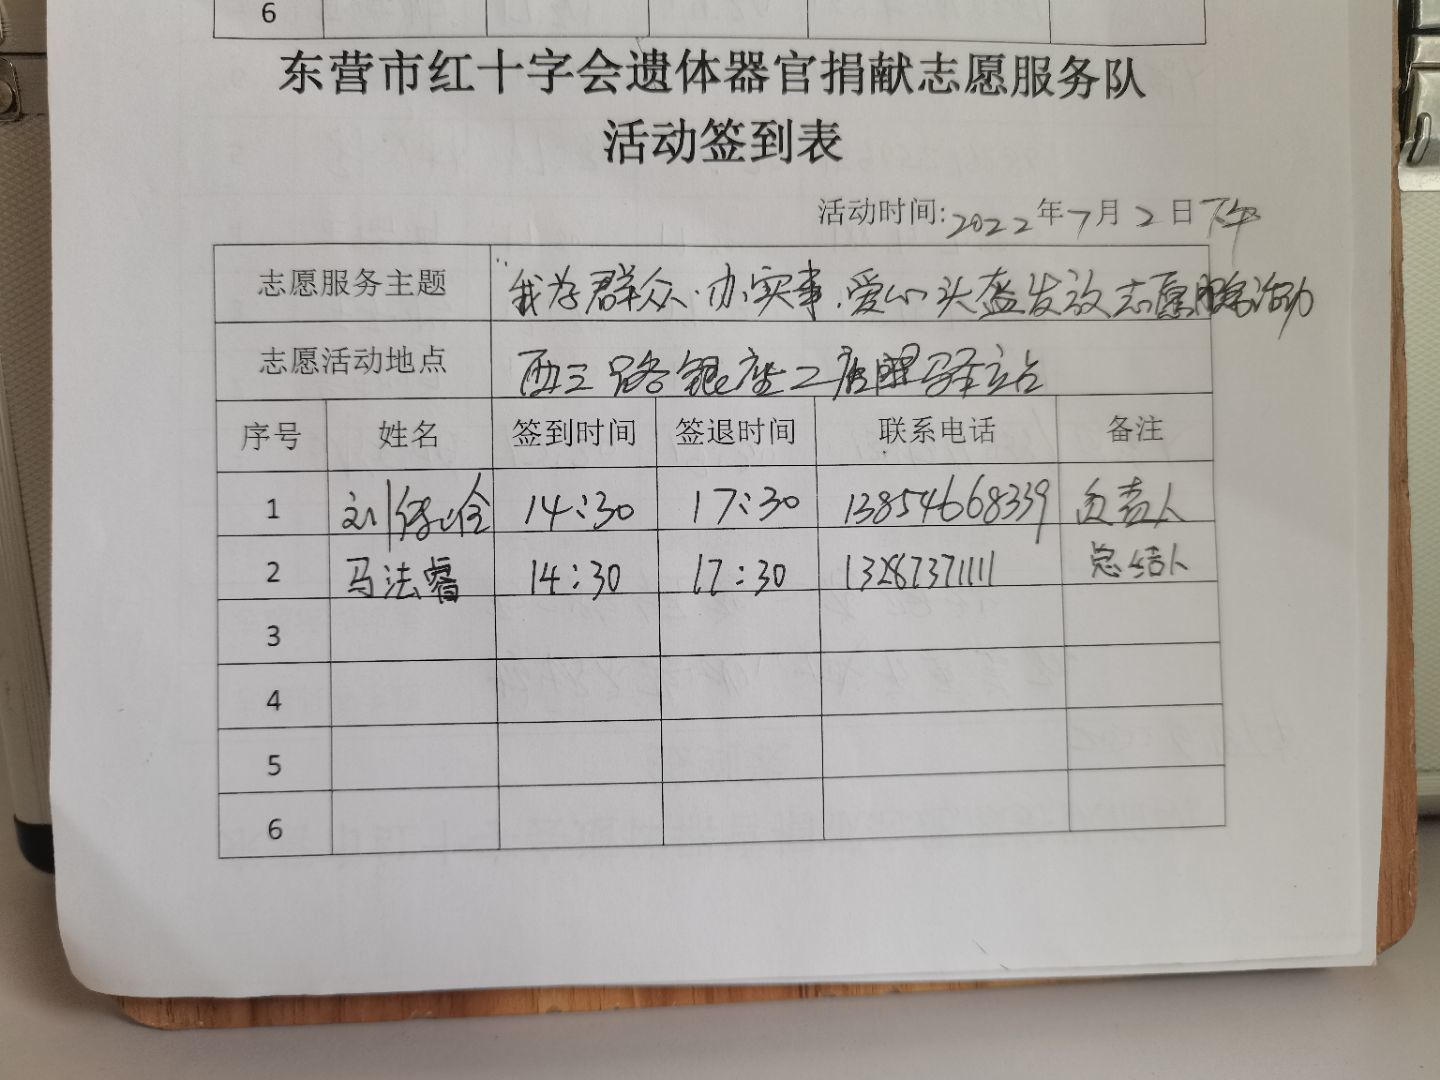 6
东营市红十字会遗体器官捐献志愿服务队
活动签到表
活动时间:2022年7月2日下午
志愿服务主题 “我为群众办实事.爱心头盔发放志愿服务活动
志愿活动地点 西三路银座二店 驿站
序号 姓名 签到时间 签退时间 联系电话 备注
1 刘 14:30 17:30 13854668339 负责人
2 马法睿 14:30 17:30 13287371111 总结人
3
4
5
6